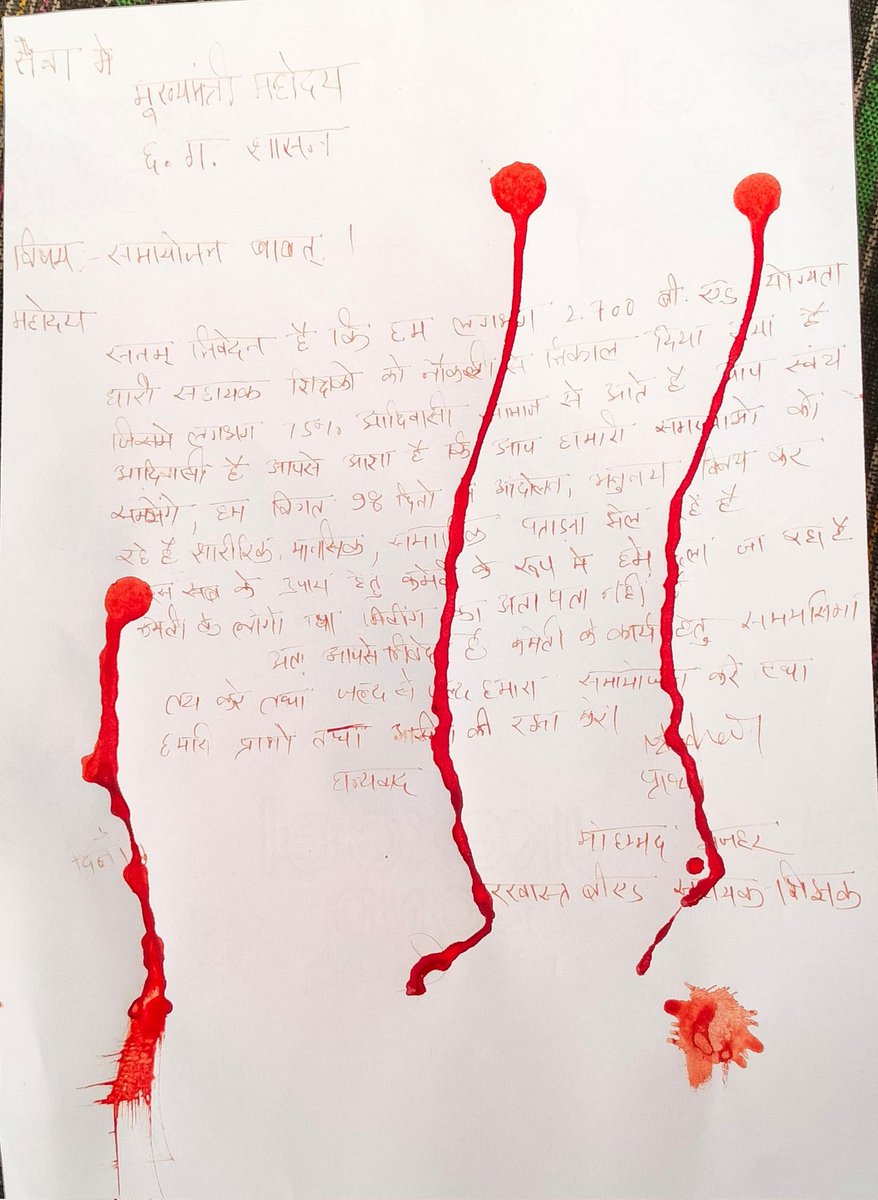 सेवा में
मुख्यमंत्री महोदय
छ. ग. शासन
विषय:- समायोजन बाबत् ।
महोदय
सनम्र निवेदन है कि हम लगभग 2.700 बी. एड योग्यता
धारी सहायक शिक्षको को नौकरी से निकाल दिया गया है
जिसमे लगभग 75%. आदिवासी समाज से आते है आप स्वंय
आदिवासी है आपसे आशा है कि आप हामारी समस्याओ को
समझेंगे, हम विगत 98 दिनो से आंदोलन, अनुनय विनय कर
रहे है शारीरिक, मानसिक, समाजिक पताडना झेल रहे है
इस सब के उपाय हेतु कमेटी के रूप मे हमे छला जा रहा है
कमेटी के लोगो तथा मिटींग का अता पता नहीं है
अतः आपसे निवेदन है कमेटी के कार्य हेतु समयसिमा
तय करे तथा जल्द से जल्द हमारा समायोजन करे तथा
हमारे प्राणो तथा की रक्षा करे।
धन्यवाद प्रार्थी
मोहम्मद अजहर
बरखास्त बीएड सहायक शिक्षक